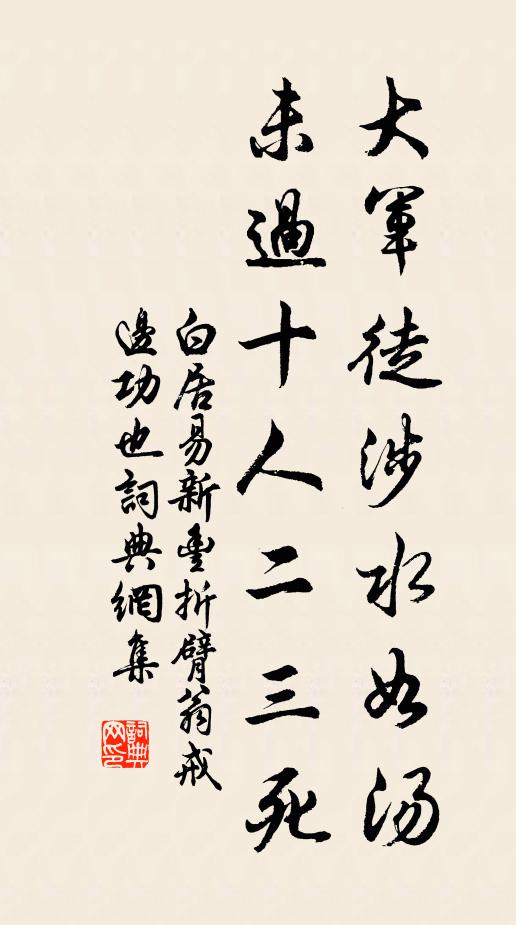 大軍徒涉水如湯
未過十人二三死
白居易新豐折臂翁戒
邊功也詞典網集
詞典
网印